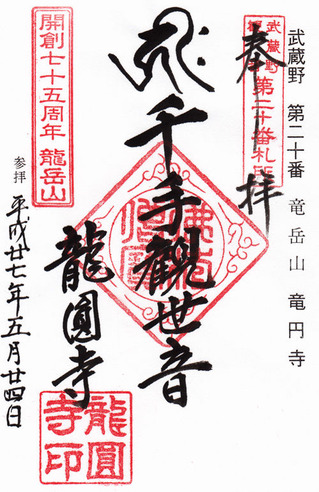 武蔵野 第二十番 竜岳山 竜円寺
武蔵野
第二十番札所
奉拝
千手観世音
龍圓寺
開創七十五周年 龍岳山
龍圓
寺印
参拝 平成廿七年五月廿四日